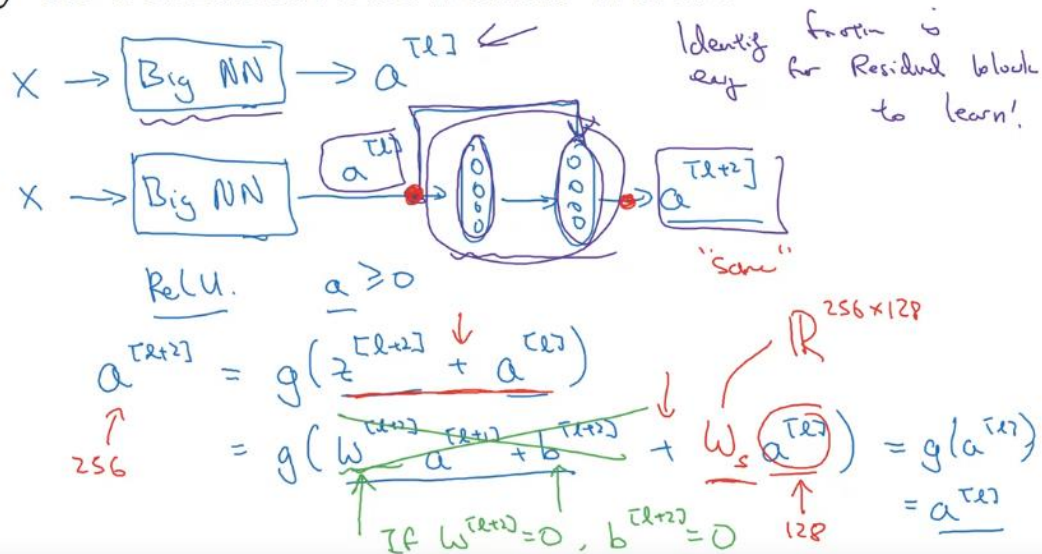 X → Big NN → a^[l]
Identity function is
easy for Residual block
to learn!
X → Big NN → a^[l] → a^[l+2]
"same"
ReLU. a ≥ 0
ℝ^256×128
a^[l+2] = g(z^[l+2] + a^[l])
256
= g(W^[l+2] a^[l+1] + b^[l+2] + W_s a^[l]) = g(a^[l])
= a^[l]
128
If W^[l+2]=0, b^[l+2]=0